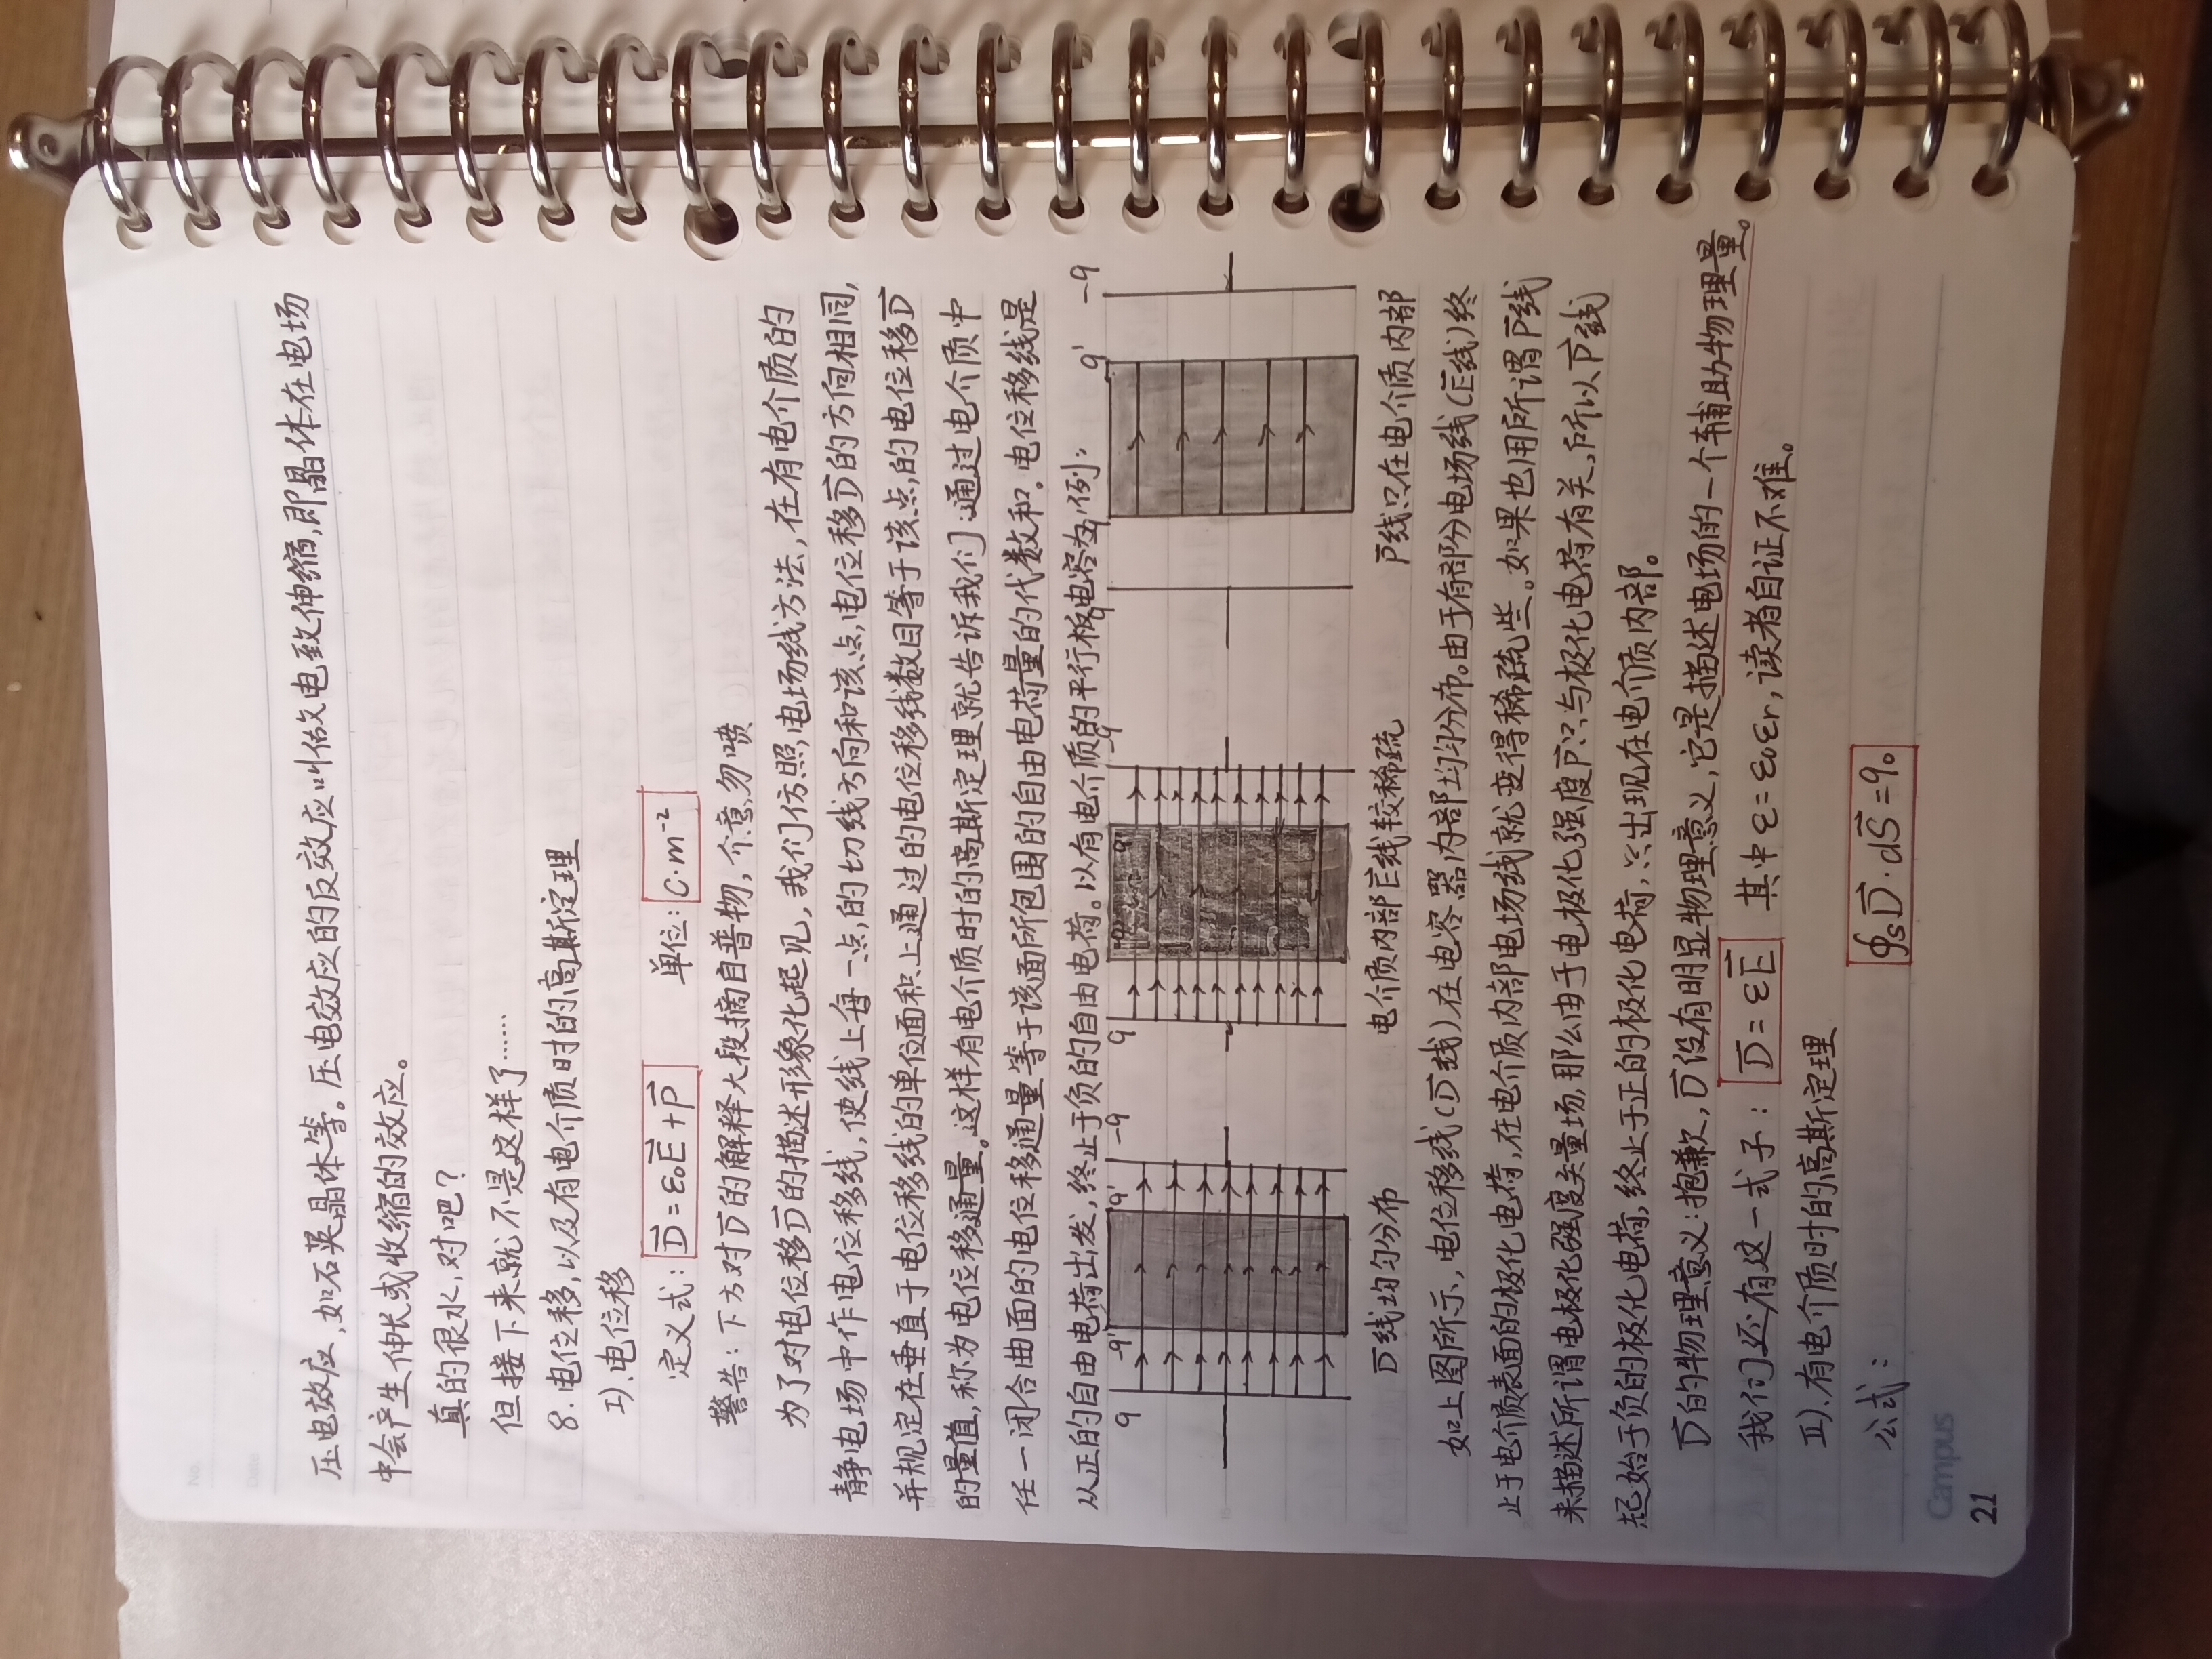 No.
Date
压电效应，如石英晶体等。压电效应的反效应叫做电致伸缩，即晶体在电场
中会产生伸长或收缩的效应。
真的很水，对吧？
但接下来就不是这样了……
8.电位移，以及有电介质时的高斯定理
I).电位移
定义式：D⃗=ε₀E⃗+P⃗ 单位：C·m⁻²
警告：下方对D⃗的解释大段摘自普物，介意勿喷
为了对电位移D⃗的描述形象化起见，我们仿照电场线方法，在有电介质的
静电场中作电位移线，使线上每一点的切线方向和该点电位移D⃗的方向相同，
并规定在垂直于电位移线的单位面积上通过的电位移线数目等于该点的电位移D⃗
的量值，称为电位移通量。这样有电介质时的高斯定理就告诉我们：通过电介质中
任一闭合曲面的电位移通量等于该面所包围的自由电荷量的代数和。电位移线是
从正的自由电荷出发，终止于负的自由电荷。以有电介质的平行板电容为例：
q -q' q' -q q -q' q' -q q' -q
D⃗线均匀分布 电介质内部E⃗线较稀疏 P⃗线只在电介质内部
如上图所示，电位移线(D⃗线)在电容器内部均匀分布。由于有部分电场线(E⃗线)终
止于电介质表面的极化电荷，在电介质内部电场线就变得稀疏些。如果也用所谓P⃗线
来描述所谓电极化强度矢量场，那么由于电极化强度P⃗只与极化电荷有关，所以P⃗线
起始于负的极化电荷，终止于正的极化电荷，只出现在电介质内部。
D⃗的物理意义：抱歉，D⃗没有明显物理意义，它是描述电场的一个辅助物理量。
我们还有这一式子：D⃗=εE⃗ 其中ε=ε₀εr，读者自证不难。
II).有电介质时的高斯定理
公式： ∮ₛD⃗·dS⃗=q₀
Campus
21